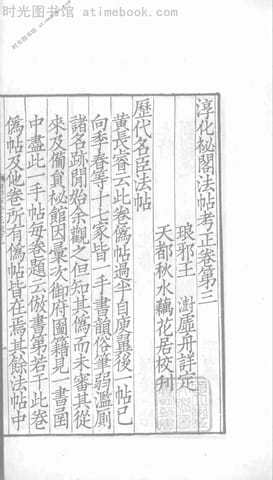 时光图书馆 atimebook.com
淳化祕閣法帖考正卷第三
琅邪王澍虛舟詳定
天都秋水藕花居校刋
歷代名臣法帖
黃長睿云此卷僞帖過半自庾翼後一帖已
向季春等十七家皆一手書韻俗筆弱濫厠
諸名跡閒始余觀之但知其僞而未審其從
來及備員祕館因彙次御府圖籍見一書函
中盡此一手帖每卷題云倣書第若干此卷
僞帖及他卷所有僞帖皆在焉其餘法帖中